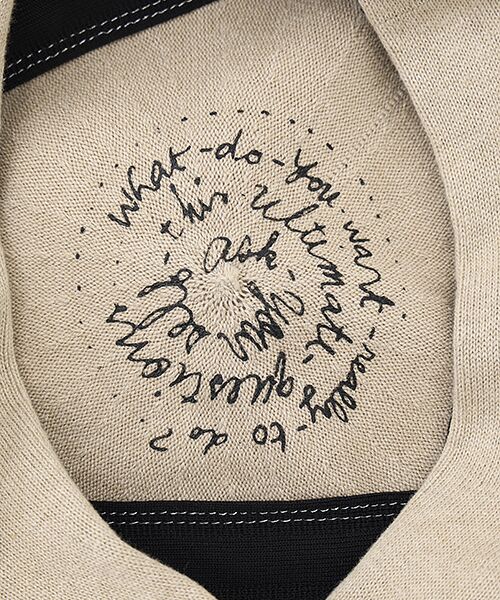 ask - your self
this ultimate question
what - do - you want - really - to do?